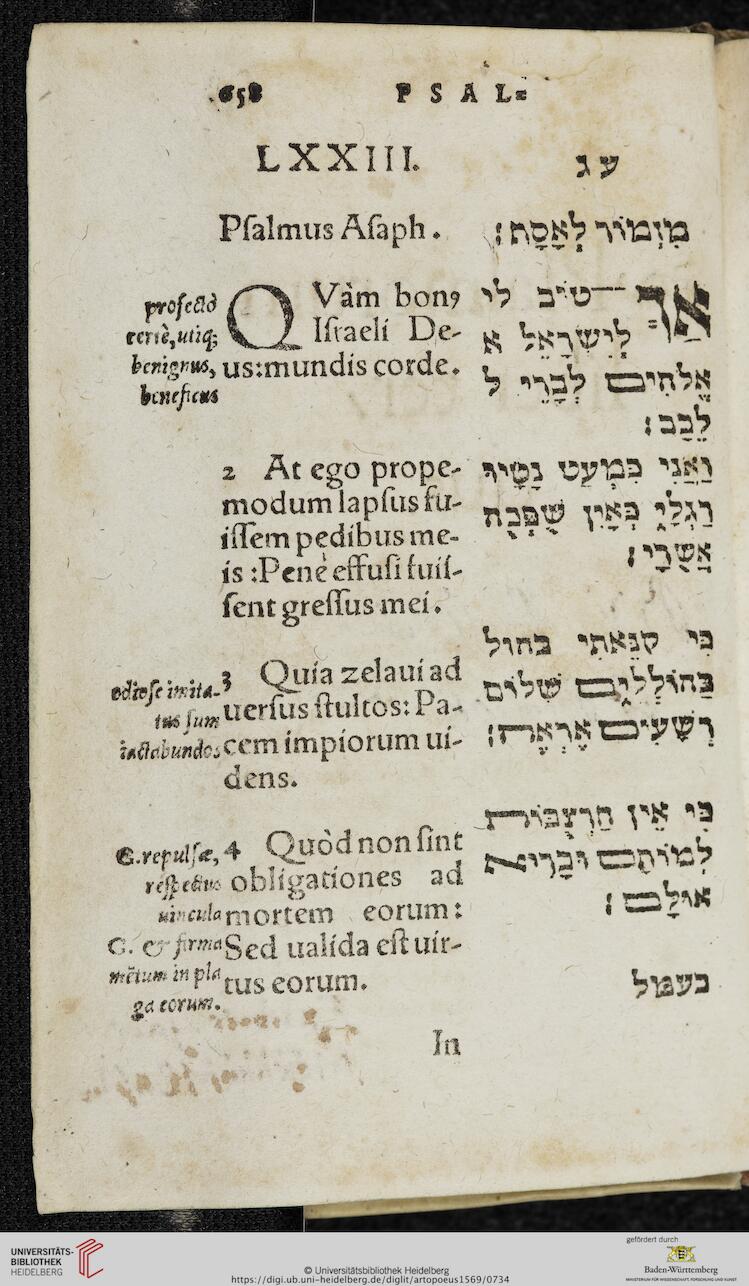 658 PSAL=
LXXIII.
עג
Pſalmus Aſaph.
מִזְמוֹר לְאָסָף׃
profectò
certè, utiq;
benignus,
beneficus
QVàm bonꝰ
Iſraeli De-
us: mundis corde.
אַךְ טוֹב לי
לְיִשְׂרָאֵל א
אֱלֹהִים לְבָרֵי ל
לֵבָב׃
2 At ego prope-
modum lapſus fu-
iſſem pedibus me-
is: Penè effuſi fuiſ-
ſent greſſus mei.
וַאֲנִי כִּמְעַט נָטָיוּ
רַגְלָי כְּאַיִן שֻׁפְּכֻה
אֲשֻׁרָי׃
odioſe imita-
tus ſum
iactabundos
3 Quia zelaui ad
uerſus ſtultos: Pa-
cem impiorum ui-
dens.
כִּי קִנֵּאתִי בהול
בַּהוֹלְלִים שְׁלוֹם
רְשָׁעִים אֶרְאֶה׃
G. repulſæ,
reſpectus
uincula
G. & firma
mētum in pla
ga eorum.
4 Quòd non ſint
obligationes ad
mortem eorum:
Sed ualida eſt uir-
tus eorum.
כִּי אֵין חַרְצֻבּוֹת
לְמוֹתָם וּבָרִיא
אוּלָם׃
In
בעמל
UNIVERSITÄTS-
BIBLIOTHEK
HEIDELBERG
© Universitätsbibliothek Heidelberg
https://digi.ub.uni-heidelberg.de/diglit/artopoeus1569/0734
gefördert durch
Baden-Württemberg
MINISTERIUM FÜR WISSENSCHAFT, FORSCHUNG UND KUNST